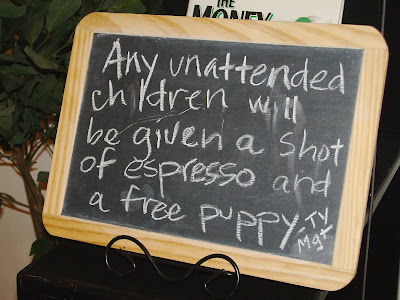 THE
MONEY
Any unattended
children will
be given a shot
of espresso and
a free puppy.
-TY
Mgt